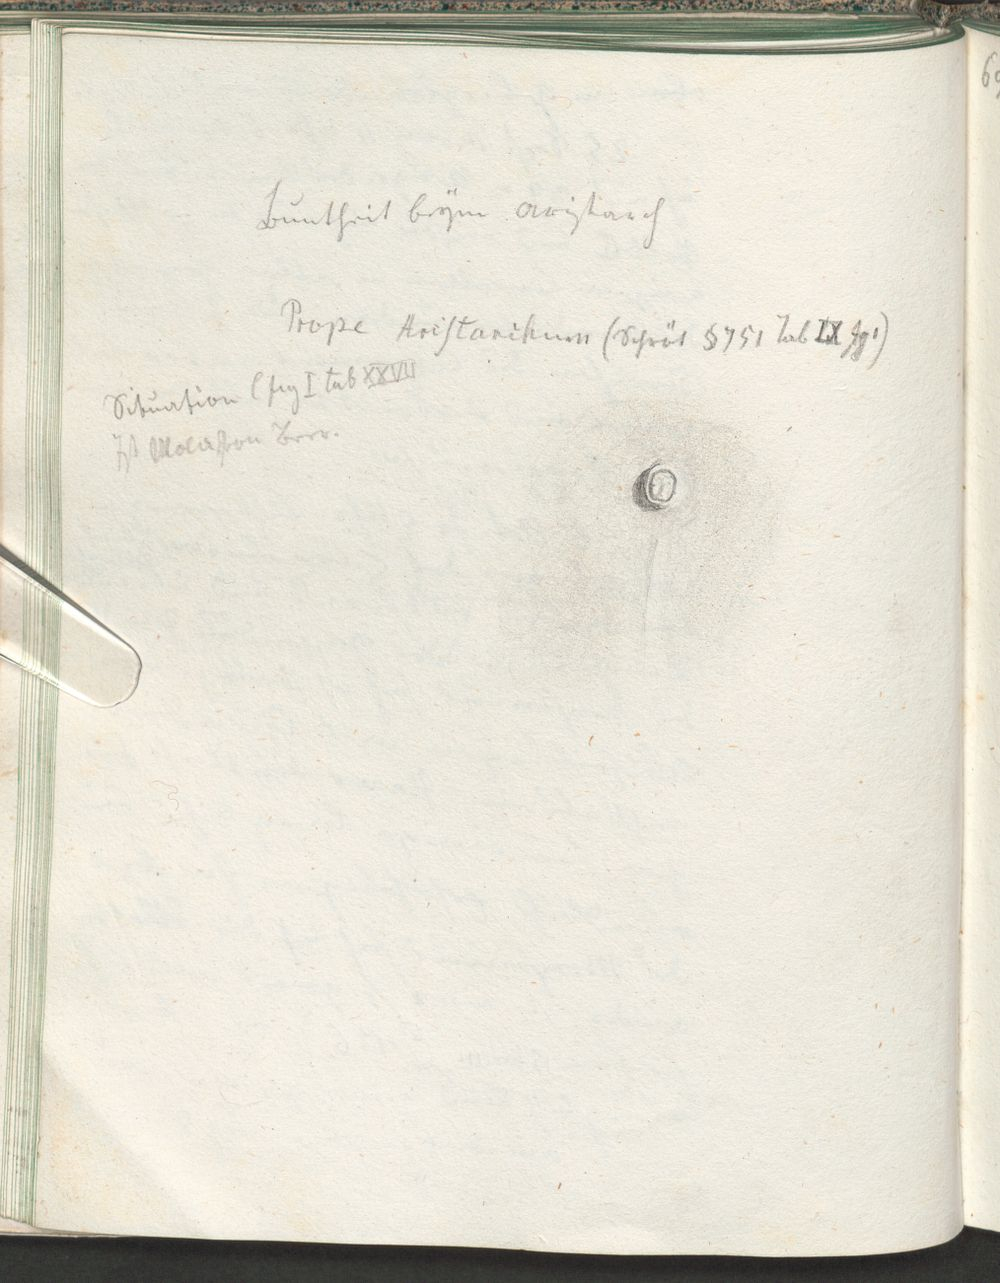 Buntheit beÿm Aristarch
Prope Aristarchum (Schröt § 751 Tab IX fg 1)
Situation (fig I tab XXVII
Ist
69